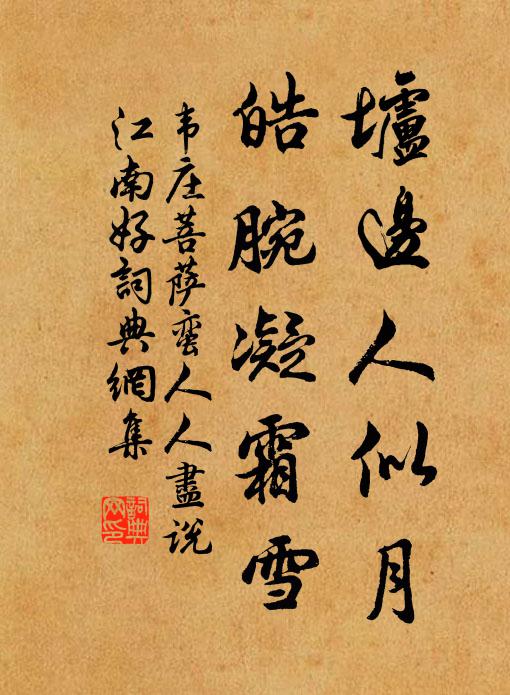 壚邊人似月
皓腕凝霜雪
韦庄菩萨蛮人人盡说
江南好詞典網集
詞典
网印